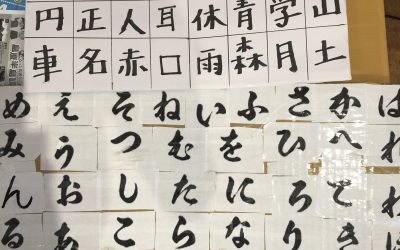 円 正 人 耳 休 青 学 山
車 名 赤 口 雨 森 月 土
め え そ ね い ふ さ か は
み う つ む を ひ へ れ
ん お し た に ろ わ
る あ こ ら な り き